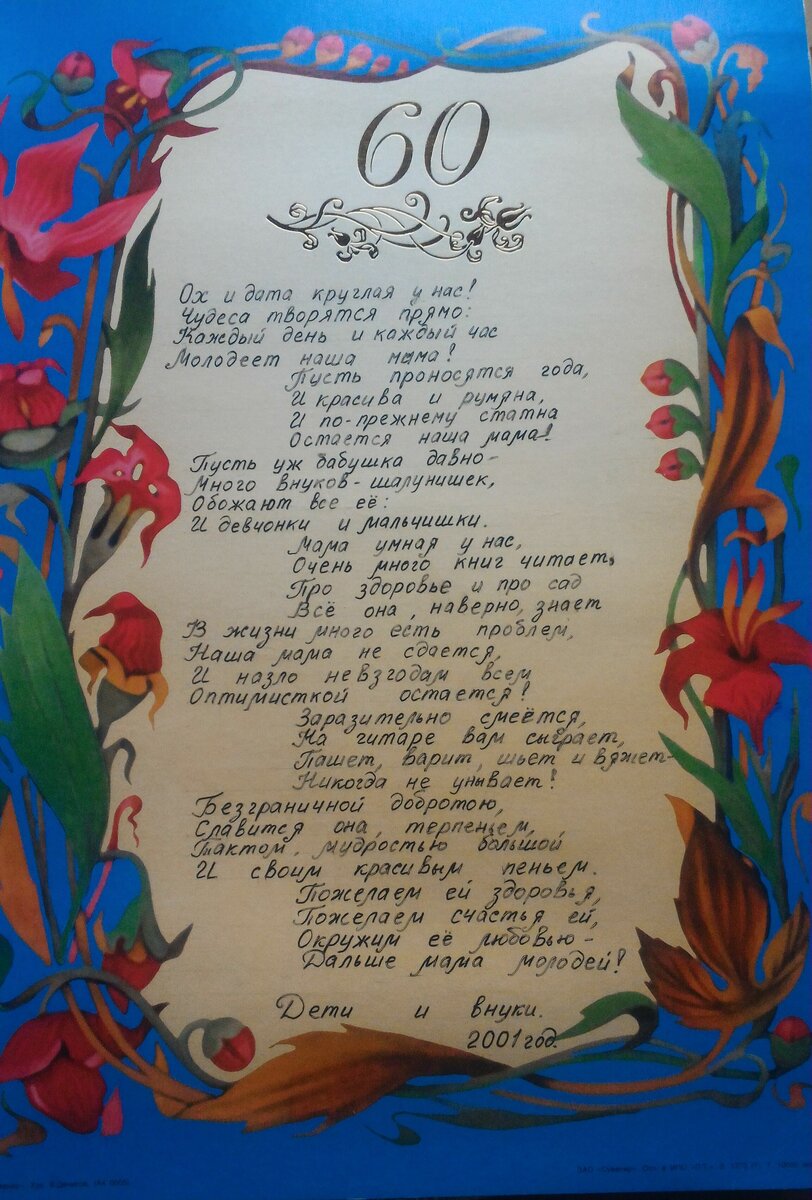 60
Ох и дата круглая у нас!
Чудеса творятся прямо:
Каждый день и каждый час
Молодеет наша мама!
Пусть проносятся года,
И красива и румяна,
И по-прежнему статна
Остается наша мама!
Пусть уж бабушка давно-
Много внуков-шалунишек,
Обожают все её:
И девчонки и мальчишки.
Мама умная у нас,
Очень много книг читает,
Про здоровье и про сад
Всё она, наверно, знает
В жизни много есть проблем,
Наша мама не сдается,
И назло невзгодам всем
Оптимисткой остается!
Заразительно смеётся,
На гитаре вам сыграет,
Пашет, варит, шьет и вяжет-
Никогда не унывает!
Безграничной добротою,
Славится она, терпеньем,
Тактом, мудростью большой
И своим красивым пеньем.
Пожелаем ей здоровья,
Пожелаем счастья ей,
Окружим её любовью-
Дальше мама молодей!
Дети и внуки.
2001 год.